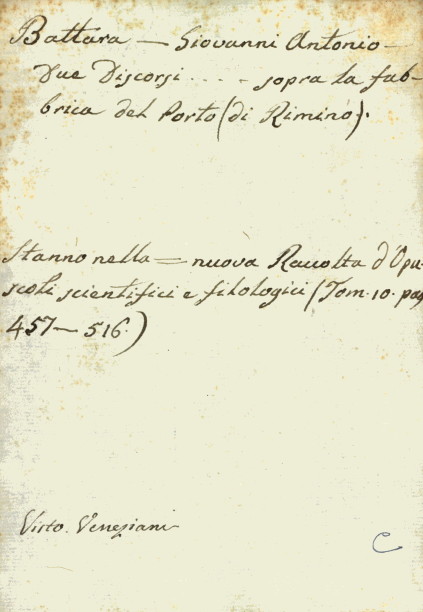 Battara — Giovanni Antonio —
Due Discorsi . . . . — sopra la fab-
brica del Porto (di Rimino).
Stanno nella = nuova Raccolta d'Opu-
scoli scientifici e filologici (Tom. 10. pag
457 — 516.)
Visto. Veneziani
C